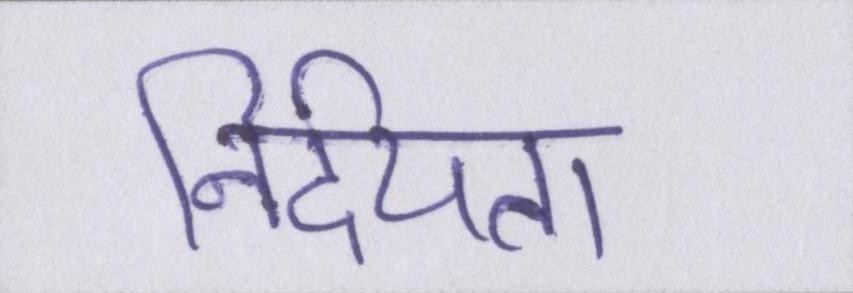 निर्दयता